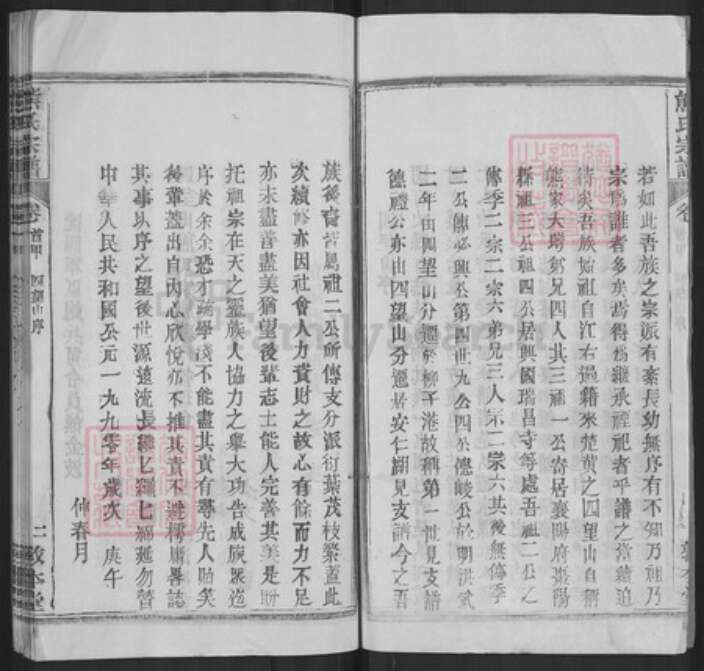 熊氏宗譜
卷首
若如此吾族之宗派有紊長幼無序有不知乃祖乃
宗為誰者多矣焉得為繼承祖祀者乎譜之當續迫
待矣吾族始祖自江右過籍來楚黃之四望山自稱
熊家大塆弟兄四人其三祖一公寄居襄陽府棗陽
縣祖三公祖四公居興國瑞昌寺等處吾祖二公之
傳季二宗二宗六弟兄三人宗二宗六其後無傳季
二公傳必興公第四世九公四公德峻公於明洪武
二年由四望山分遷於柳子港故稱第一世見支譜
德禮公亦由四望山分遷居安仁湖見支譜今之吾
族後裔皆為祖二公所傳支分派衍葉茂枝繁蓋此
次續修亦因社會人力資財之故心有餘而力不足
亦未盡善盡美猶望後輩志士能人完善其美是盼
托祖宗在天之靈族人協力之舉大功告成族眾造
序於余余恐才疏學淺不能盡其責有辱先人貽笑
後輩蓋出自內心欣悅亦不推其責不避樗庸畧誌
其事以序之望後世源遠流長繼匕繩匕綿延勿替
中華人民共和國公元一九九零年歲次 庚午
仲春月
熊氏宗譜
卷首
四望山序
二
敦本堂
FamilySearch